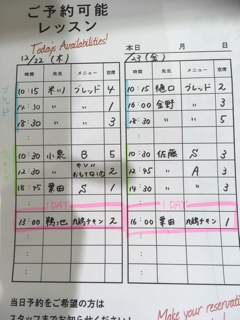 ご予約可能
レッスン
Todays Availabilities!
本日 月 日
12/22 (木) /23 (金)
時間 先生 メニュー 空席 時間 先生 メニュー 空席
10:15 米川 ブレッド 4 10:15 樋口 ブレッド 2
14:30 〃 〃 1 16:00 金野 〃 3
18:30 〃 〃 3 18:30 〃 〃 5
: :
10:30 小泉 B 5 10:30 佐藤 S 3
12:45 〃 2 12:45 〃 A 3
18:45 栗田 S 1 14:30 〃 〃 3
: :
1DAY 1DAY
13:00 鶴池 丸鶏チキン 2 16:00 栗田 丸鶏チキン 1
: :
: :
当日予約をご希望の方は
スタッフまでお知らせください!
Make your reservati